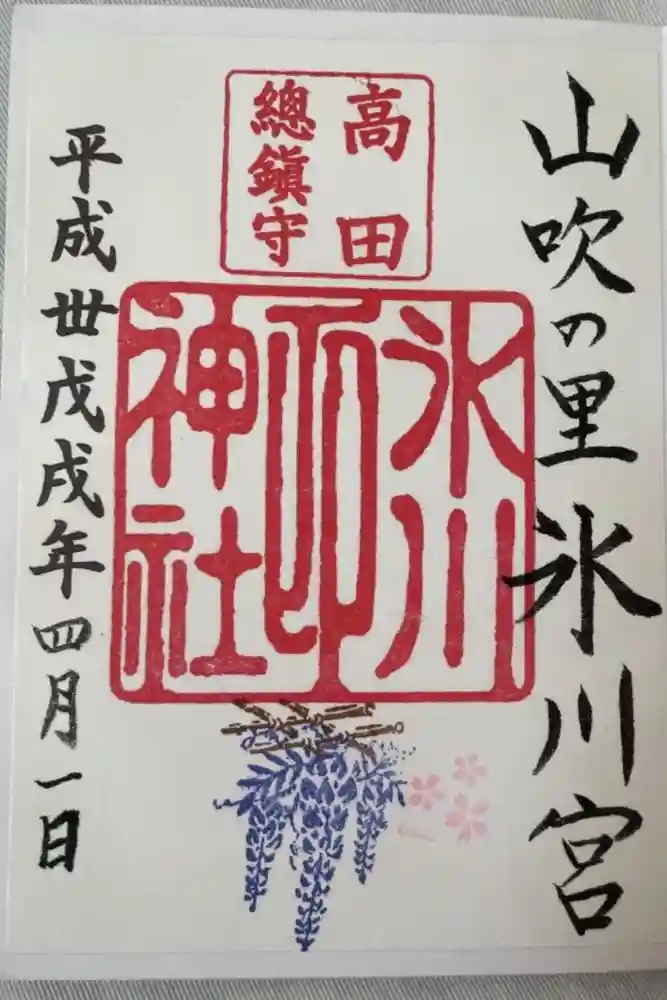 山吹の里氷川宮
高田
總鎮守
氷川
印
神社
平成丗戊戌年四月一日